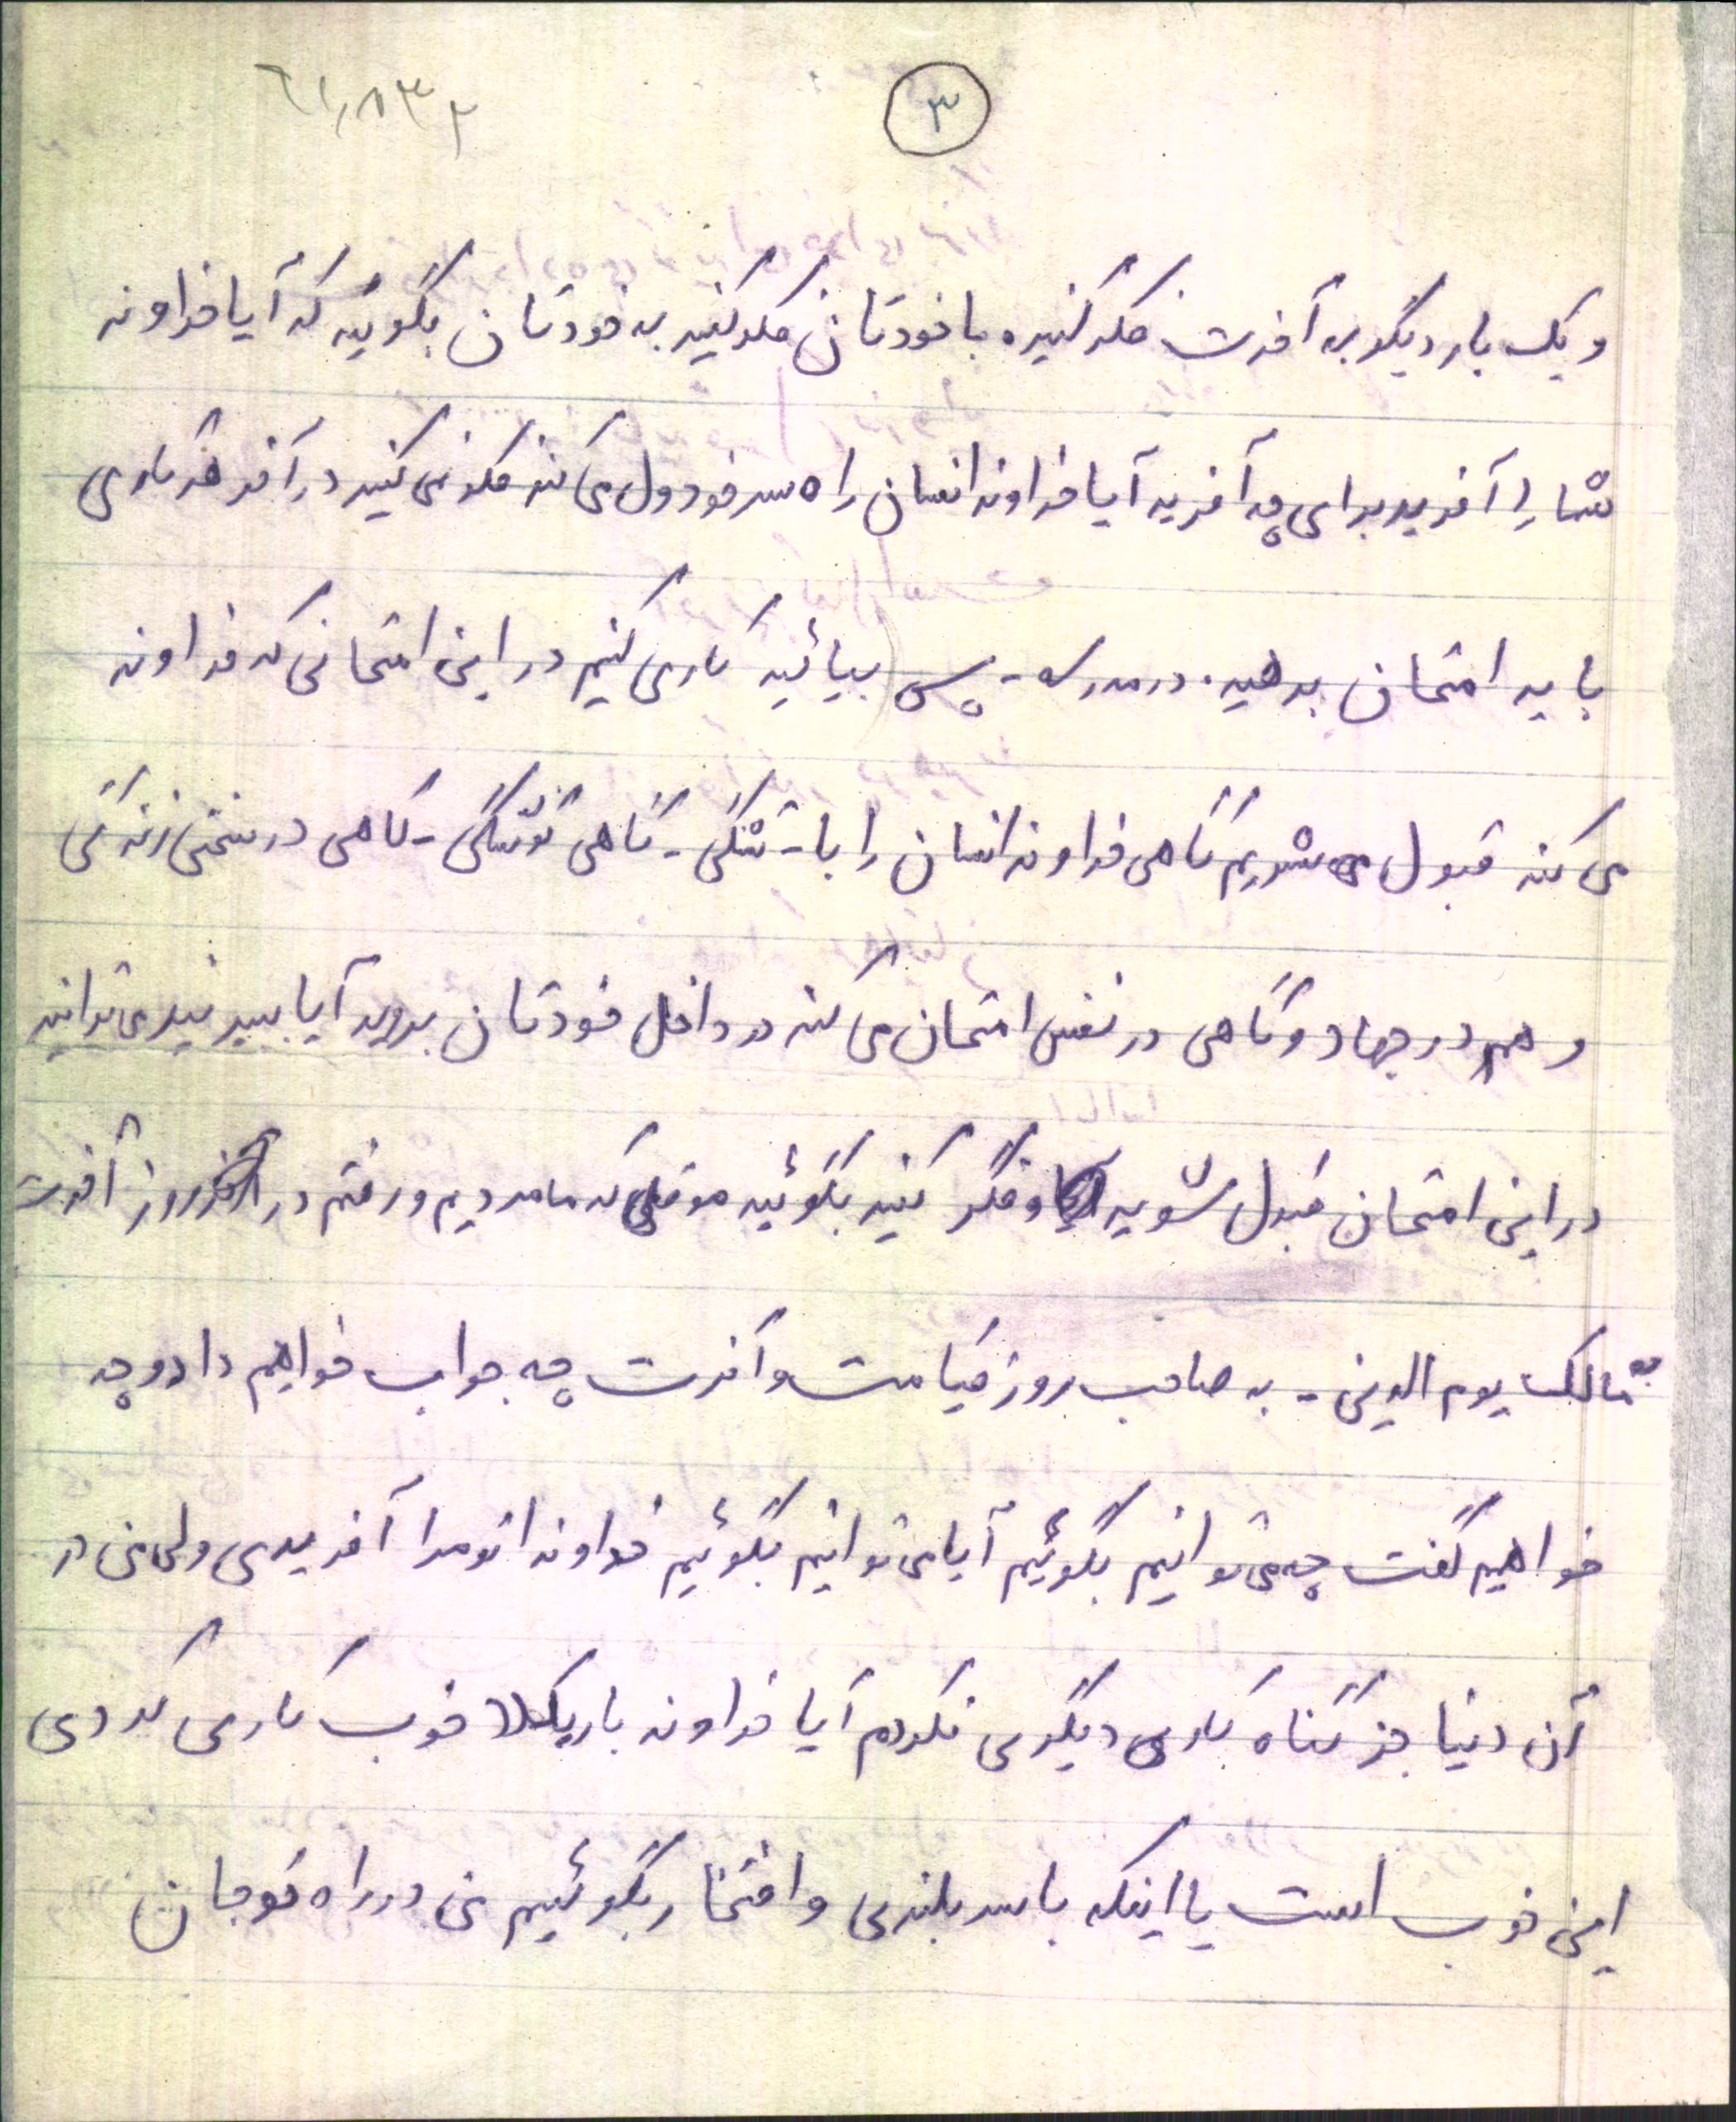 ۳
و یک بار دیگر به آخرت فکر کنید. با خودتان فکر کنید به خودتان بگوئید که آیا خداوند
شما را آفرید برای چه آفرید آیا خداوند انسان را ه سر خود ول می کند فکر نمی کنید در آخر هر کاری
باید امتحان بدهید. در مدرسه - پس بیائید کاری کنیم در این امتحانی که خداوند
می کند قبول شویم گاهی خداوند انسان را با - تشنگی - گاهی گشنگی - گاهی در سختی زندگی
و هم در جهاد و گاهی در نفس امتحان می کند در داخل خودتان بروید آیا ببینید می توانید
در این امتحان قبول شوید و فکر کنید بگوئید موقعی که ما مردیم و رفتم در روز آخرت
به مالک یوم الدین - به صاحب روز قیامت و آخرت چه جواب خواهیم داد و چه
خواهیم گفت چه می توانیم بگوئیم آیا می توانیم بگوئیم خداوندا تو مرا آفریدی ولی من در
آن دنیا جز گناه کاری دیگری نکردم آیا خداوند باریکلا خوب کاری کردی
این خوب است یا اینکه با سربلندی و افتخار بگوئیم من در راه تو جان